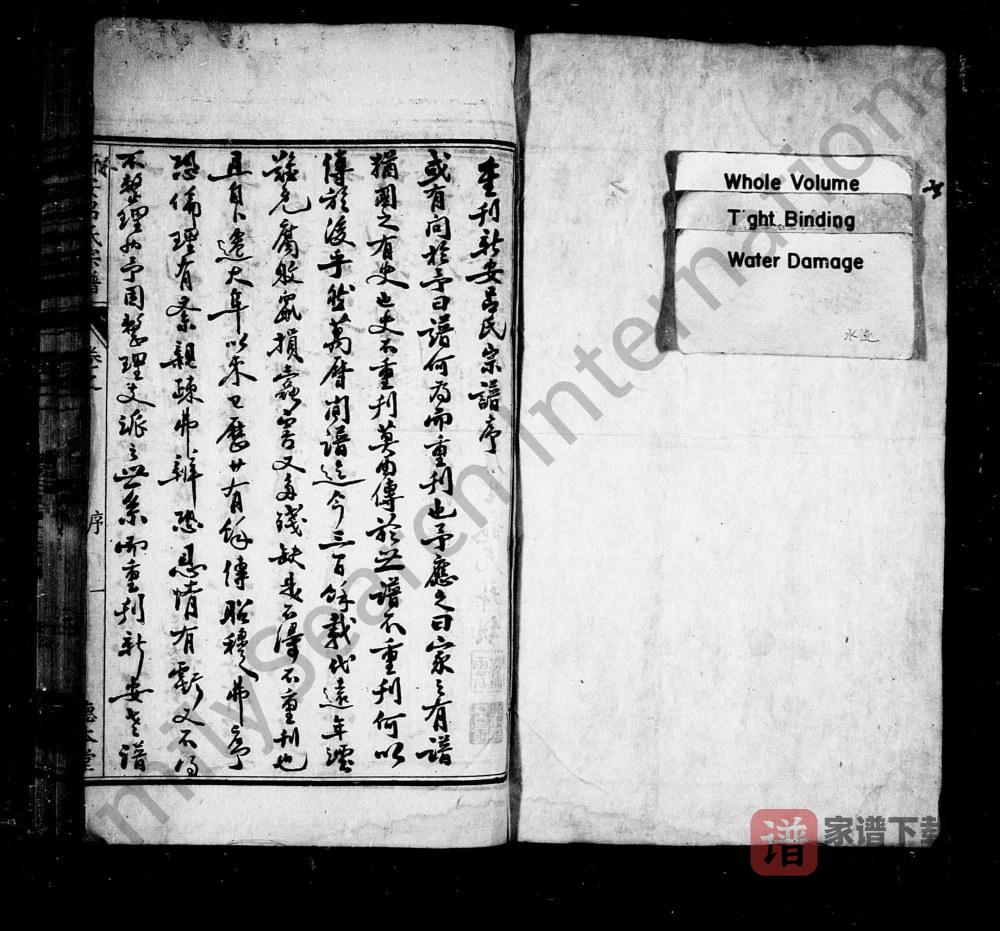 重刊新安呂氏宗譜序
或有问於予曰譜何為而重刊也予應之曰家之有譜
猶國之有史也史不重刊莫由傳於世譜不重刊何以
傳於後乎然萬曆间譜迄今三百餘載代遠年湮
難免腐敗鼠損蠹害又多殘缺是不得不重刊也
且自卜遷大阜以來已歷廿有餘傳昭穆之弗序
恐倫理有紊親疎弗辨恐恩情有虧又不得
不整理如予因整理支派之世系而重刊新安老譜
呂氏宗譜
序
一
Whole Volume
Tight Binding
Water Damage
水迹
FamilySearch International
谱
家谱下载